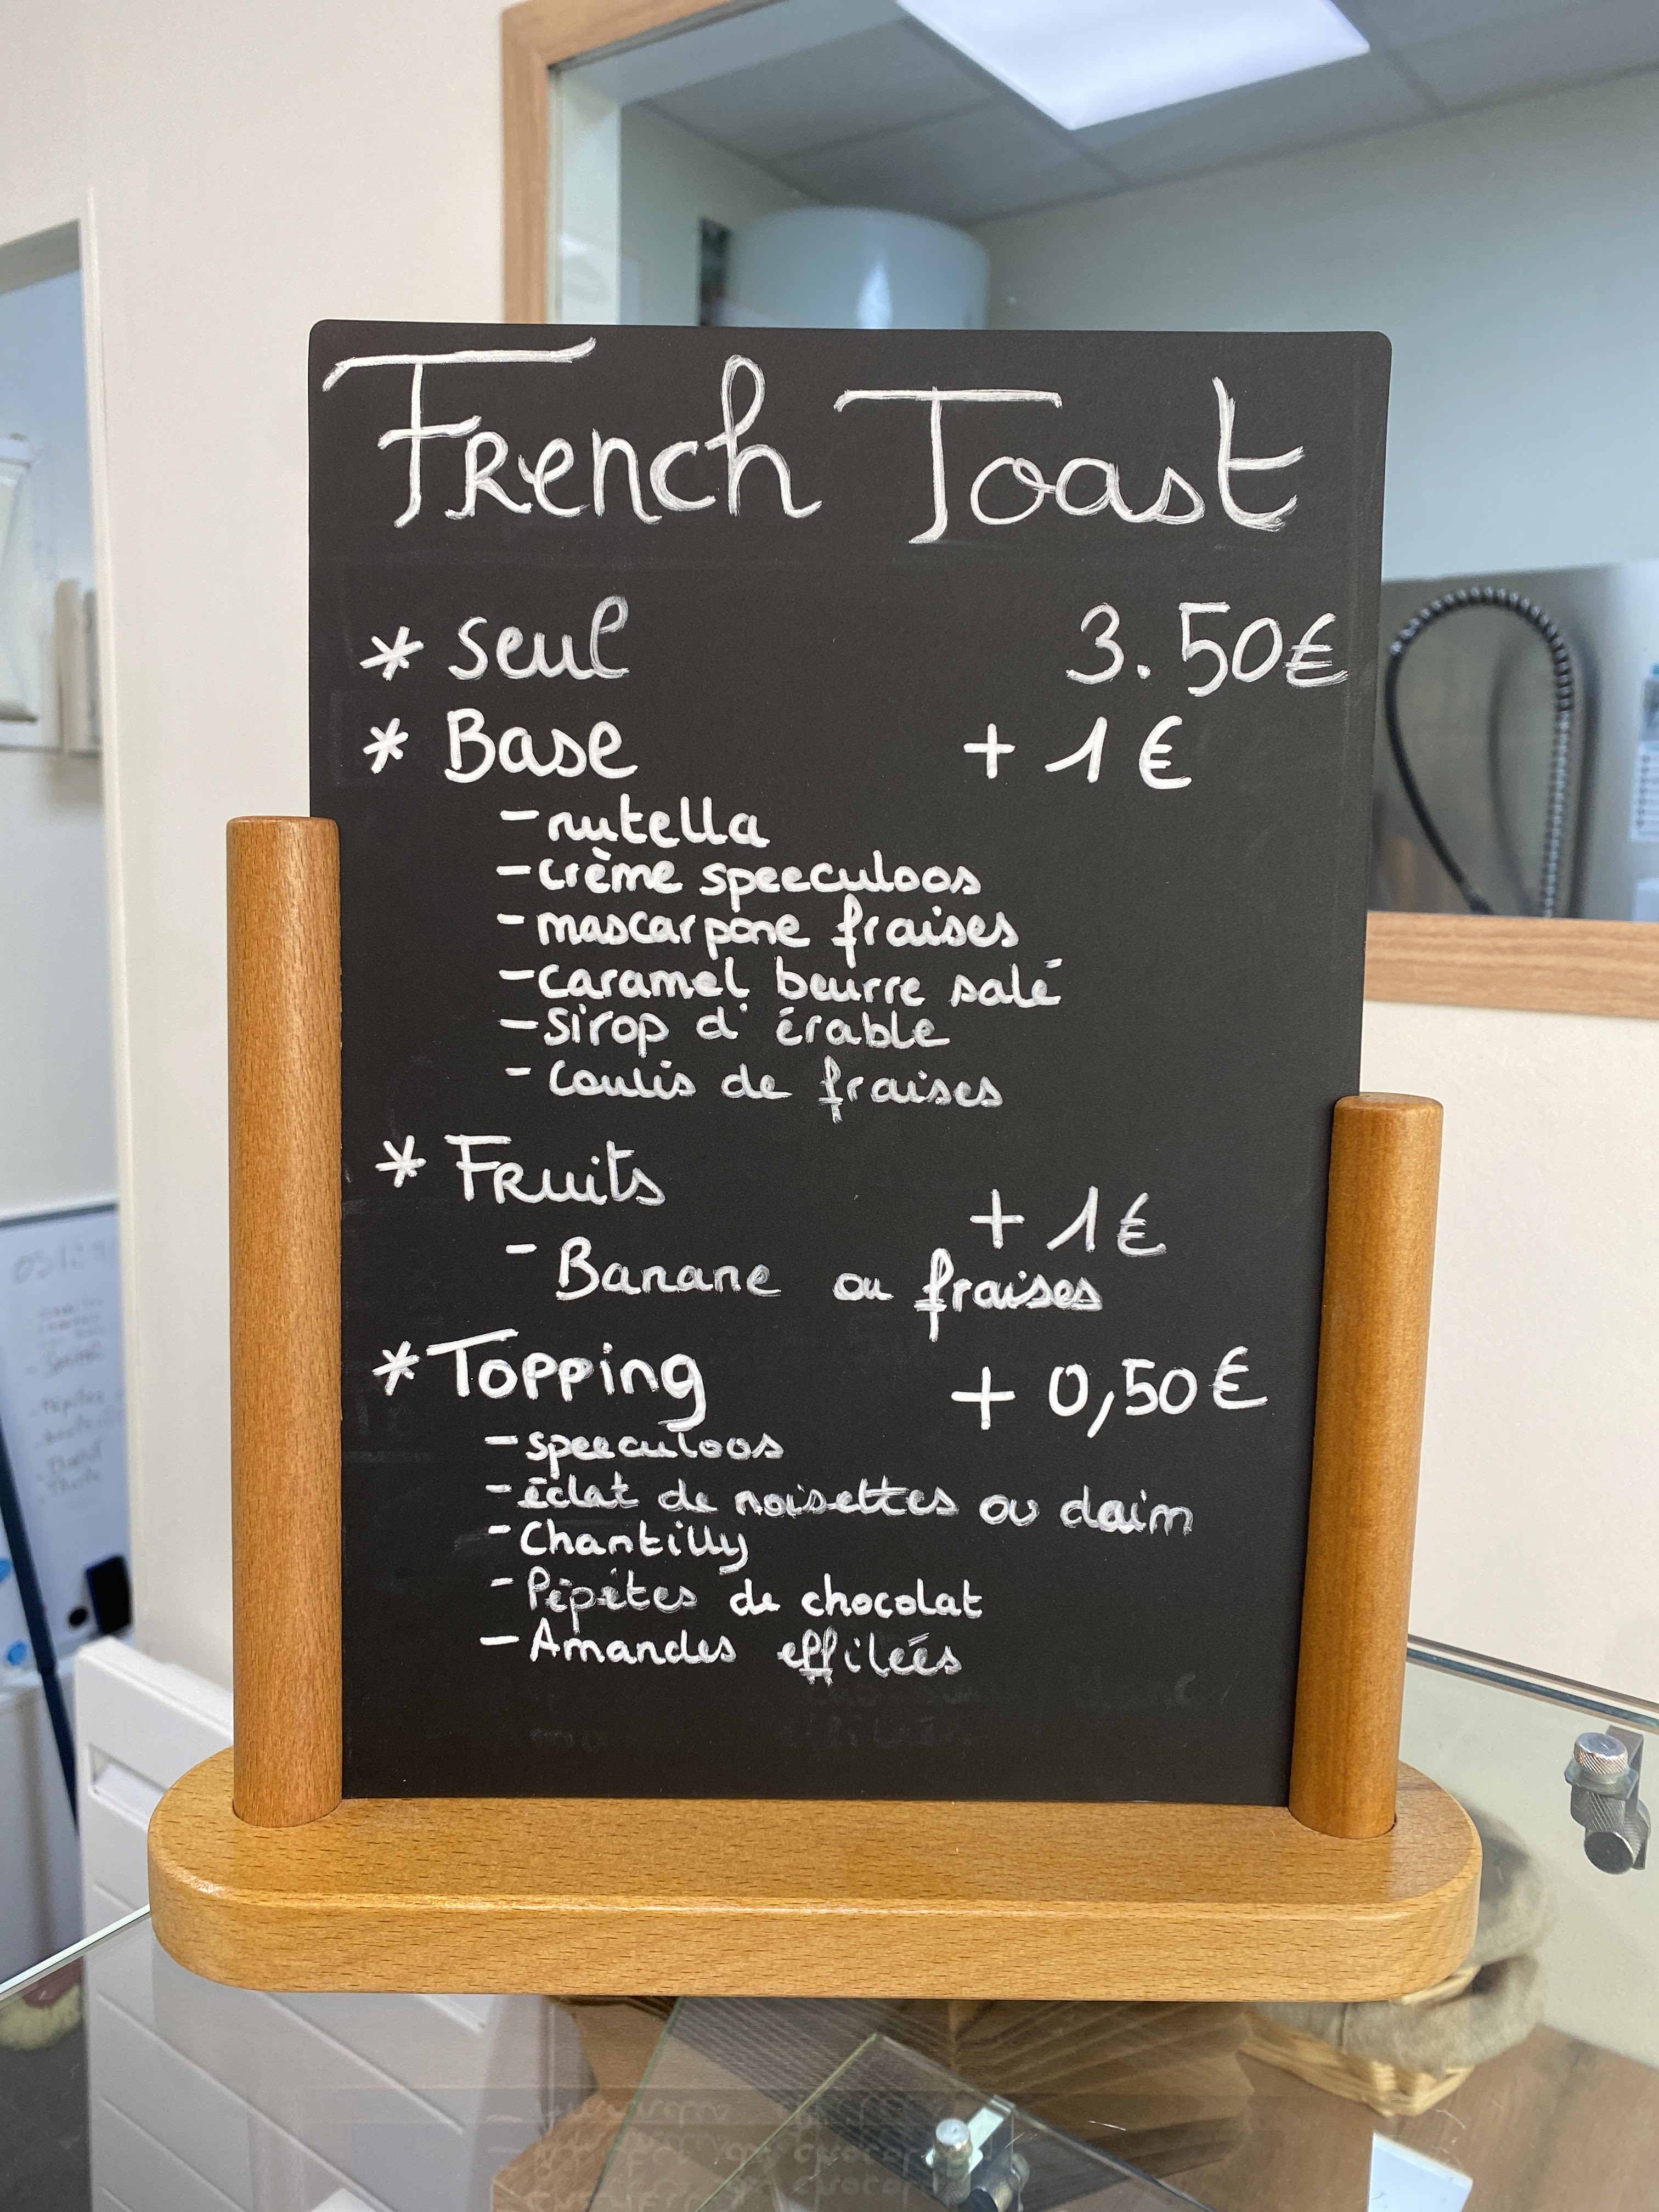 French Toast
* Seul 3.50€
* Base + 1€
- nutella
- crème speeculoos
- mascarpone fraises
- caramel beurre salé
- Sirop d'érable
- Coulis de fraises
* Fruits
+ 1€
- Banane ou fraises
* Topping + 0,50€
- speeculoos
- éclat de noisettes ou daim
- Chantilly
- Pépites de chocolat
- Amandes effileés